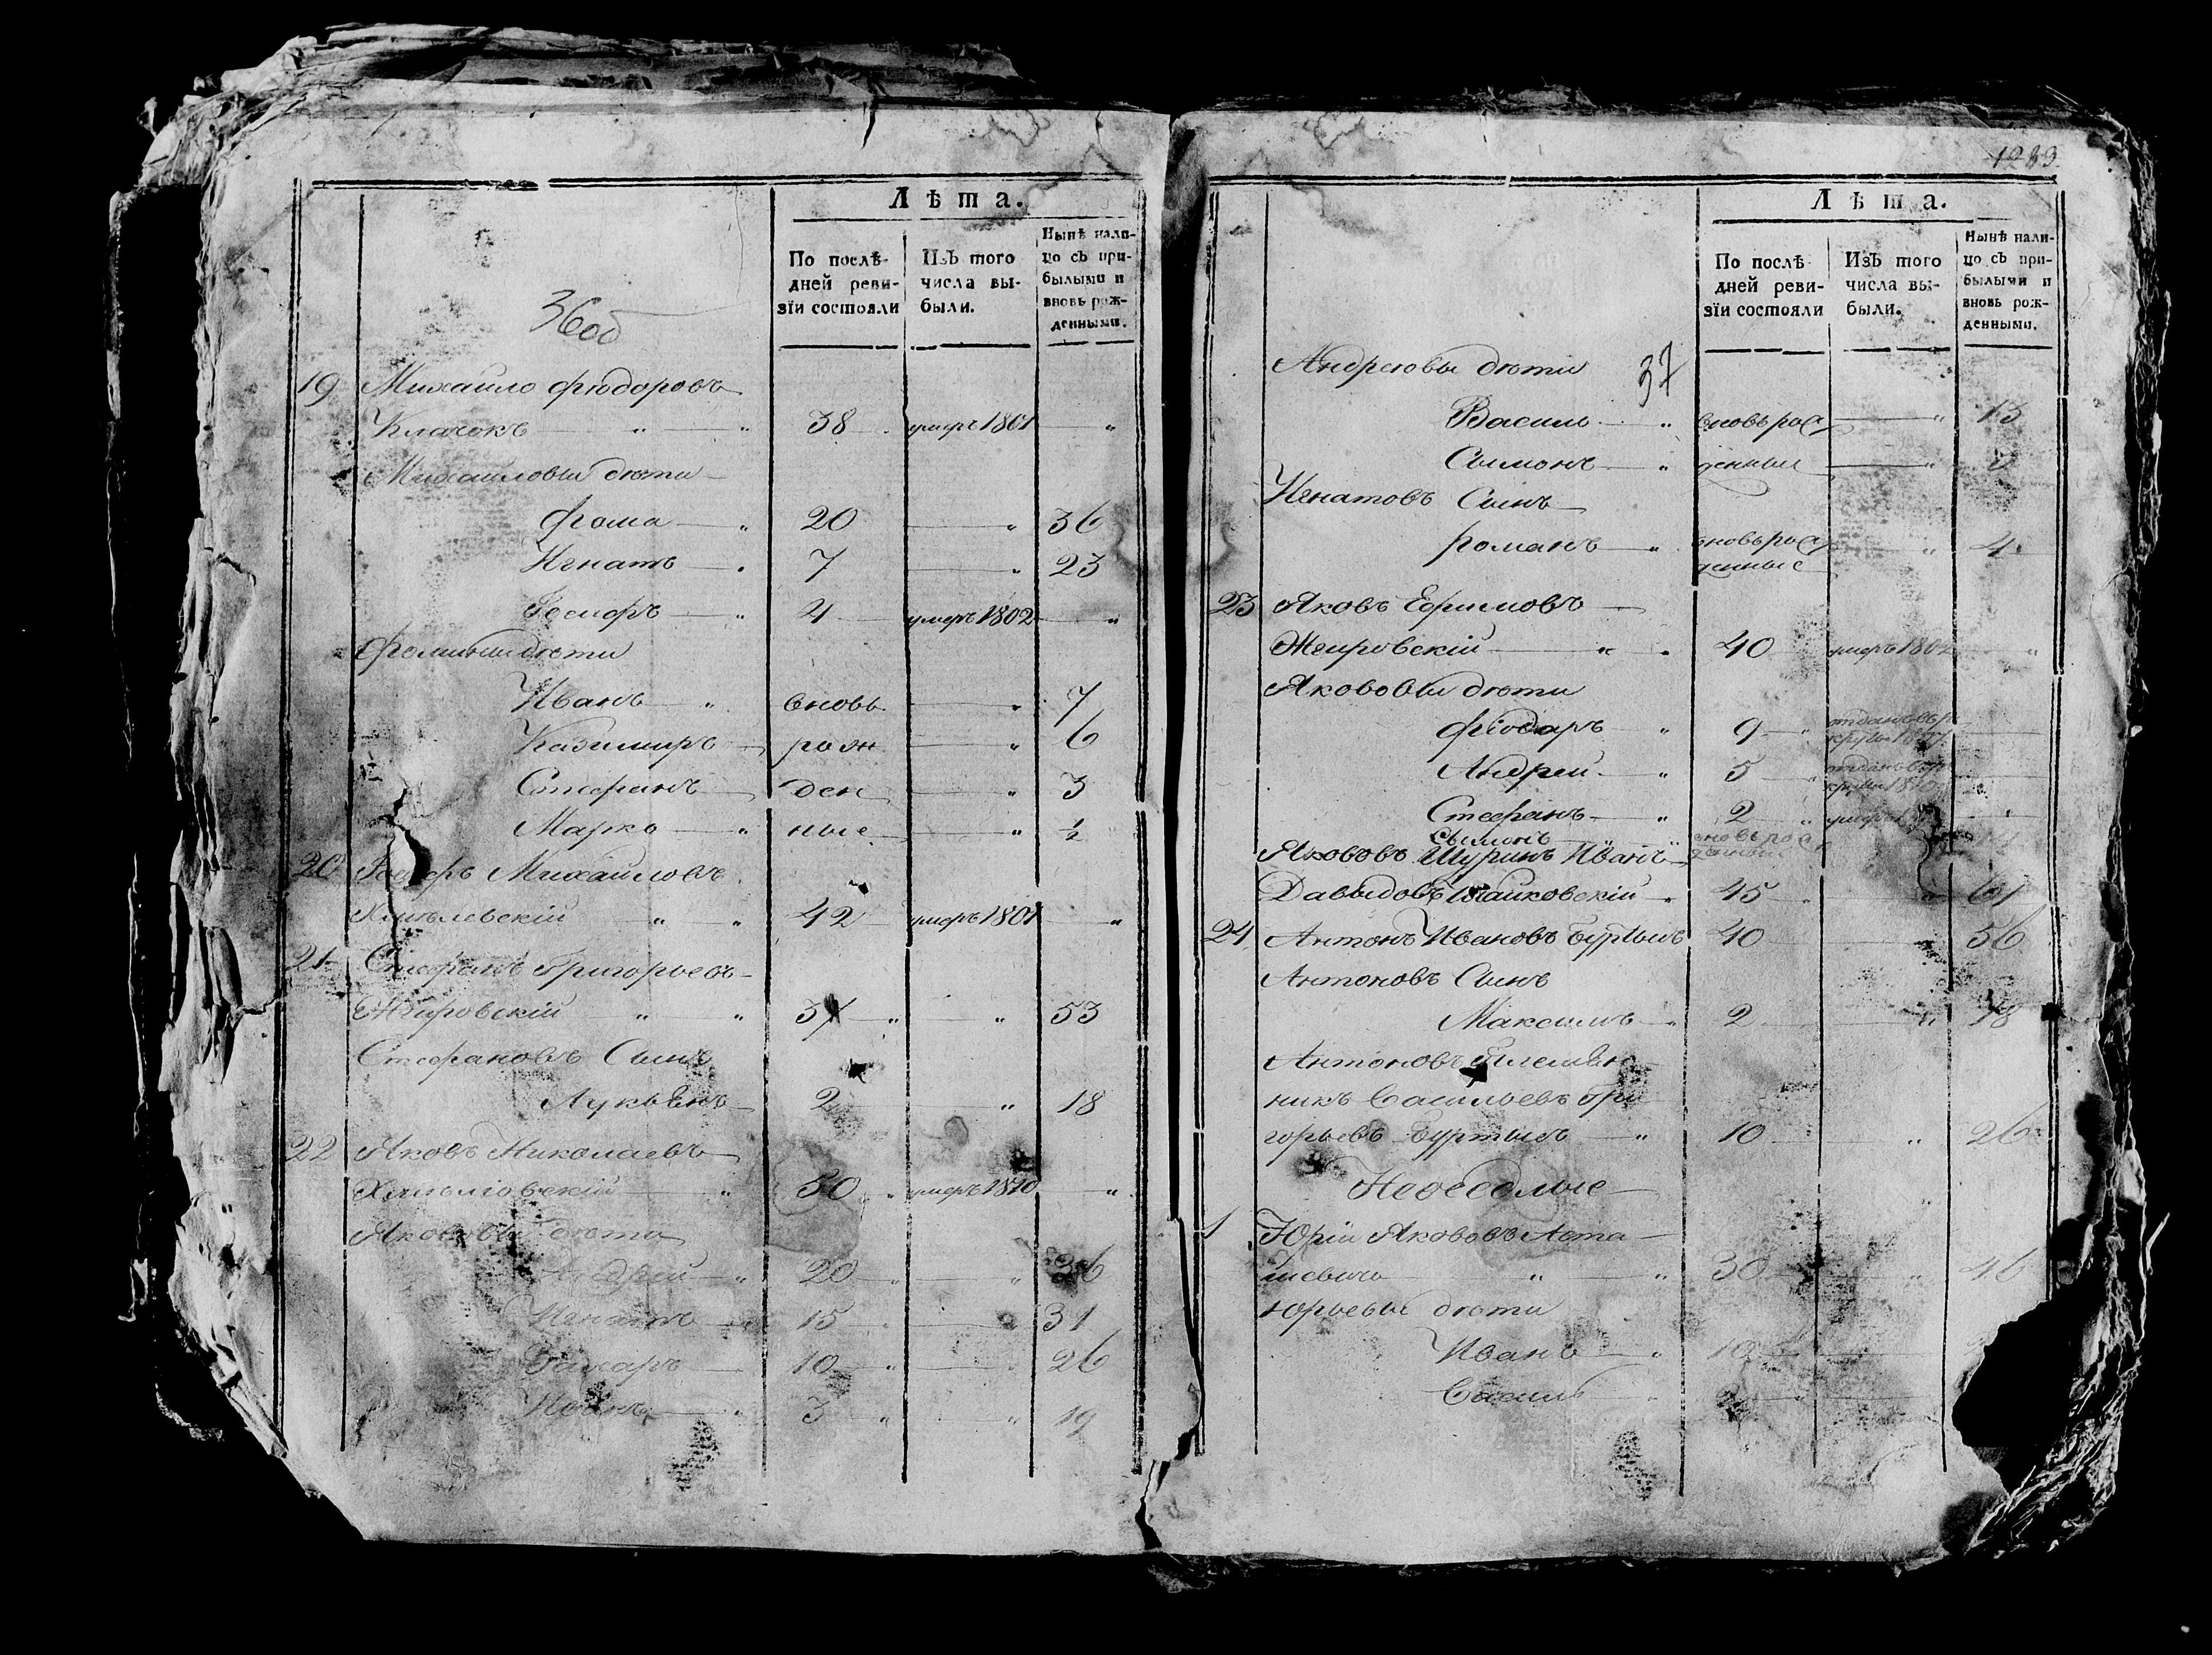 Лѣта.
По послѣдней ревизїи состояли
Изъ того числа выбыли.
Нынѣ налицо съ прибылыми и вновь рожденными.
36об
19 Михайло Фюдоровъ
Клачокъ " " 38 умеръ 1801 "
Михайловы дѣти
Фома " 20 " 36
Игнатъ 7 " 23
Іосифъ " 4 умеръ 1802 "
Фомины дѣти
Иванъ " вновь " 7
Казимиръ рож " 6
Стефанъ ден " 3
Марко " ные " 1/2
20 Михайловъ
" " 42 умеръ 1801 "
21 Стефанъ Григорьевъ
Жировскій " " 37 " " 53
Стефановъ Сынъ
Лукьянъ 2 " 18
22 Яковъ Николаевъ
" 50 " умеръ 1810 "
Яковов дѣти
Андрей " 20 " " 36
Игнатъ 15 " 31
Захаръ 10 " " 26
Иванъ " 3 " " 19
1289
Лѣта.
По послѣдней ревизїи состояли
Изъ того числа выбыли.
Нынѣ налицо съ прибылыми и вновь рожденными.
37
Андреювы дѣти
Василь " вновьрож " 13
Сымонъ " денныя "
Игнатовъ Сынъ
Романъ " вновьрож " 4
денные
23 Яковъ Ефимовъ
Жировскій " " 40 умеръ 180 "
Якововы дѣти
Фіодаръ " 9 " отданъ въ ре
круты
Андрей " 5 " отданъ въ ре
круты
Стефанъ " 2 " умеръ
Сымонъ " вновь рож
Якововъ Шуринъ Иванъ денный
Давыдовъ " 45 " 61
24 Антонъ Ивановъ Буртыль 40 56
Антоновъ Сынъ
Максимъ 2 " 18
Антоновъ племян
никъ Васильевъ Гри
горьевъ Буртыль " 10 " 26
Неоседлые
1 Юрій Якововъ Аста
шевичъ " " 30 " 46
Юрьевы дѣти
Иванъ " 10
Василь